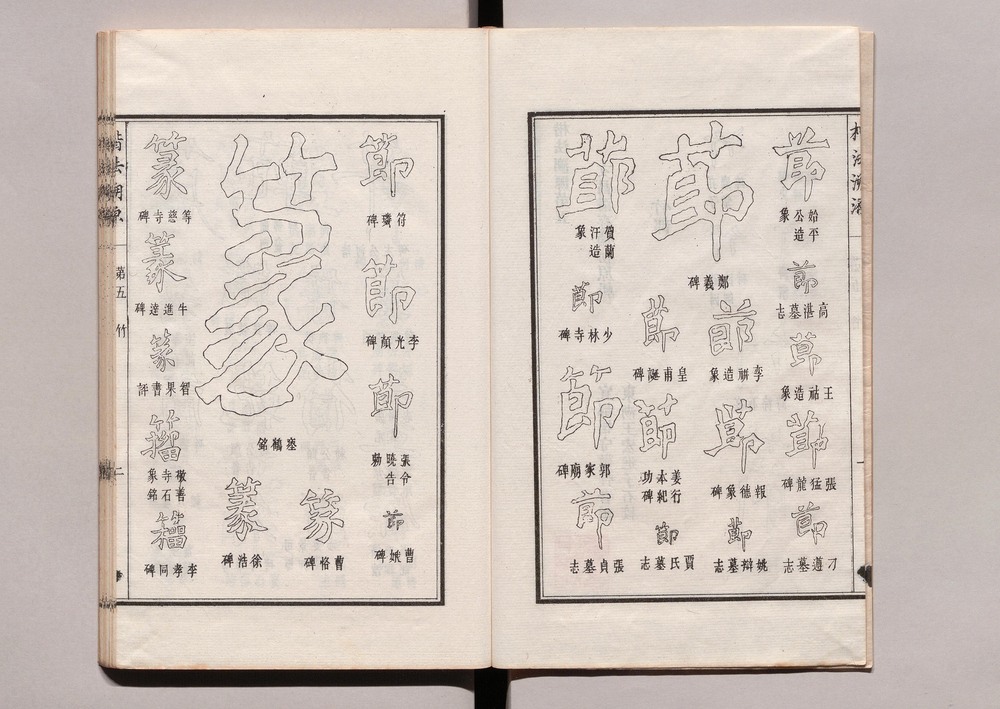 楷法溯源
節
始平公造象
節
高湛墓志
節
王祜造象
節
張猛龍碑
節
刁遵墓志
節
鄭羲碑
節
造象
節
報德象碑
節
姚辯墓志
節
皇甫誕碑
節
姜行本紀功碑
節
賈氏墓志
節
賀蘭汗造象
節
少林寺碑
節
郭家廟碑
節
張貞墓志
節
苻璘碑
節
李光顏碑
節
張令曉告勅
節
曹娥碑
篆
瘞鶴銘
篆
曹恪碑
篆
徐浩碑
篆
等慈寺碑
篆
牛進達碑
篆
智果書評
籀
敬善寺石象銘
籀
李孝同碑
楷法溯源
第五 竹
二